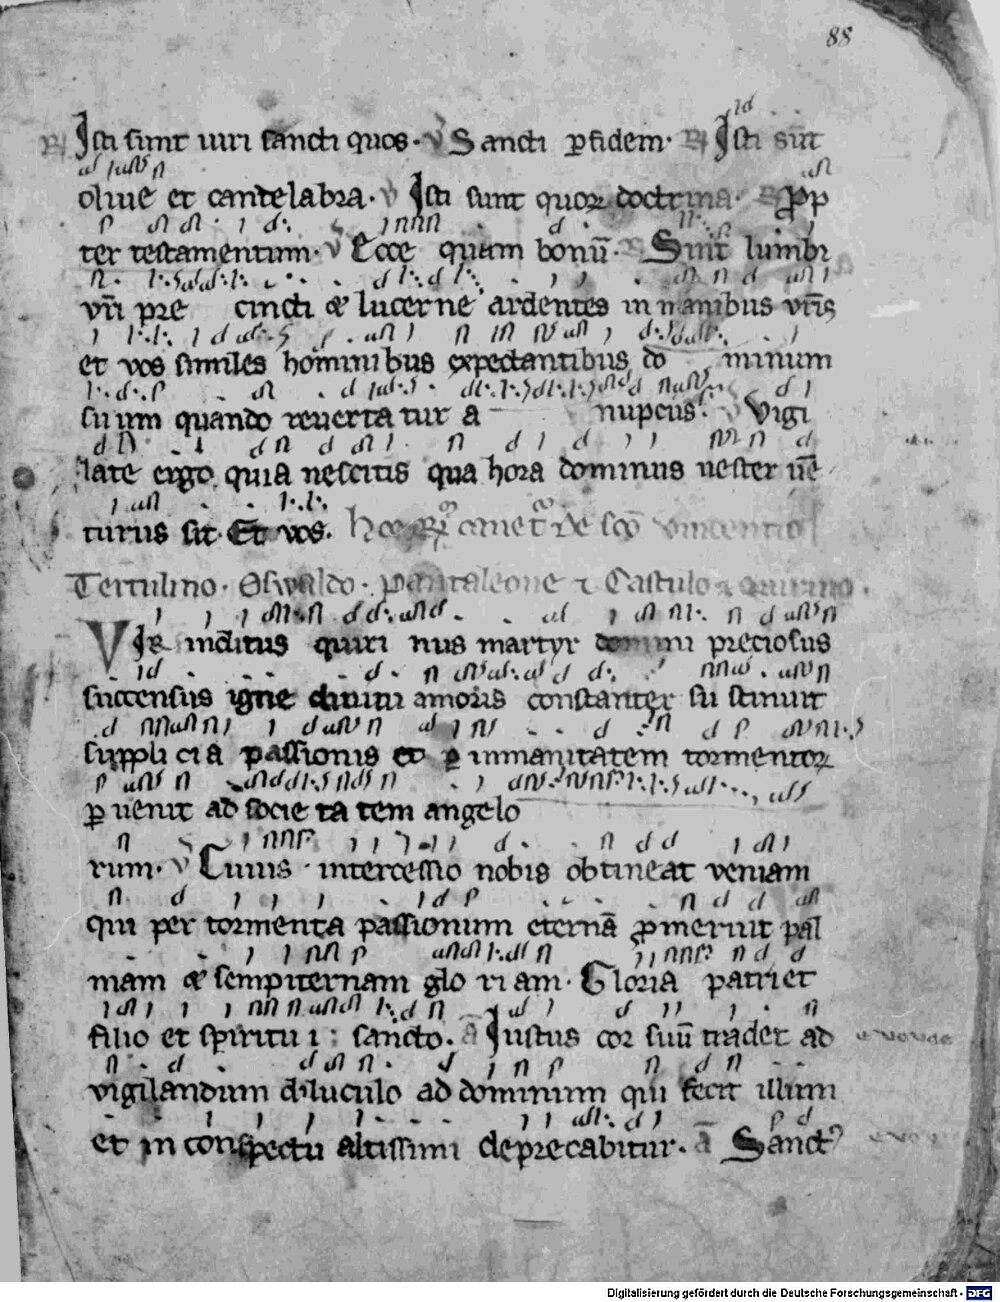 88
R Isti sunt uiri sancti quos. V Sancti ꝑ fidem. R Isti sūt
oliue et candelabra. V Isti sunt quoꝝ doctrina. R Prop
ter testamentum. V Ecce quam bonū. R Sint lumbi
vr̄i pre cincti & lucerne ardentes in manibus vr̄is
et vos similes hominibus expectantibus do minum
suum quando reuerta tur a nupciis. V Vigi
late ergo quia nescitis qua hora dominus uester uē
turus sit. Et vos. Hoc R̄ de sc̄o vincentio
Tertulino. Oswaldo. pantaleone ⁊ Castulo ⁊ quirino.
Vir inclitus quiri nus martyr domini preciosus
succensus igne diuini amoris constanter su stinuit
suppli cia passionis et ꝑ inmanitatem tormentoꝝ
ꝑ uenit ad socie ta tem angelo
rum. V Cuius intercessio nobis obtineat veniam
qui per tormenta passionum eternā ꝓmeruit pal
mam & sempiternam glo ri am. Gloria patri et
filio et spiritu i sancto. a Iustus cor suū tradet ad
vigilandum diluculo ad dominum qui fecit illum
et in conspectu altissimi deprecabitur. ā Sanctꝰ
Digitalisierung gefördert durch die Deutsche Forschungsgemeinschaft - DFG